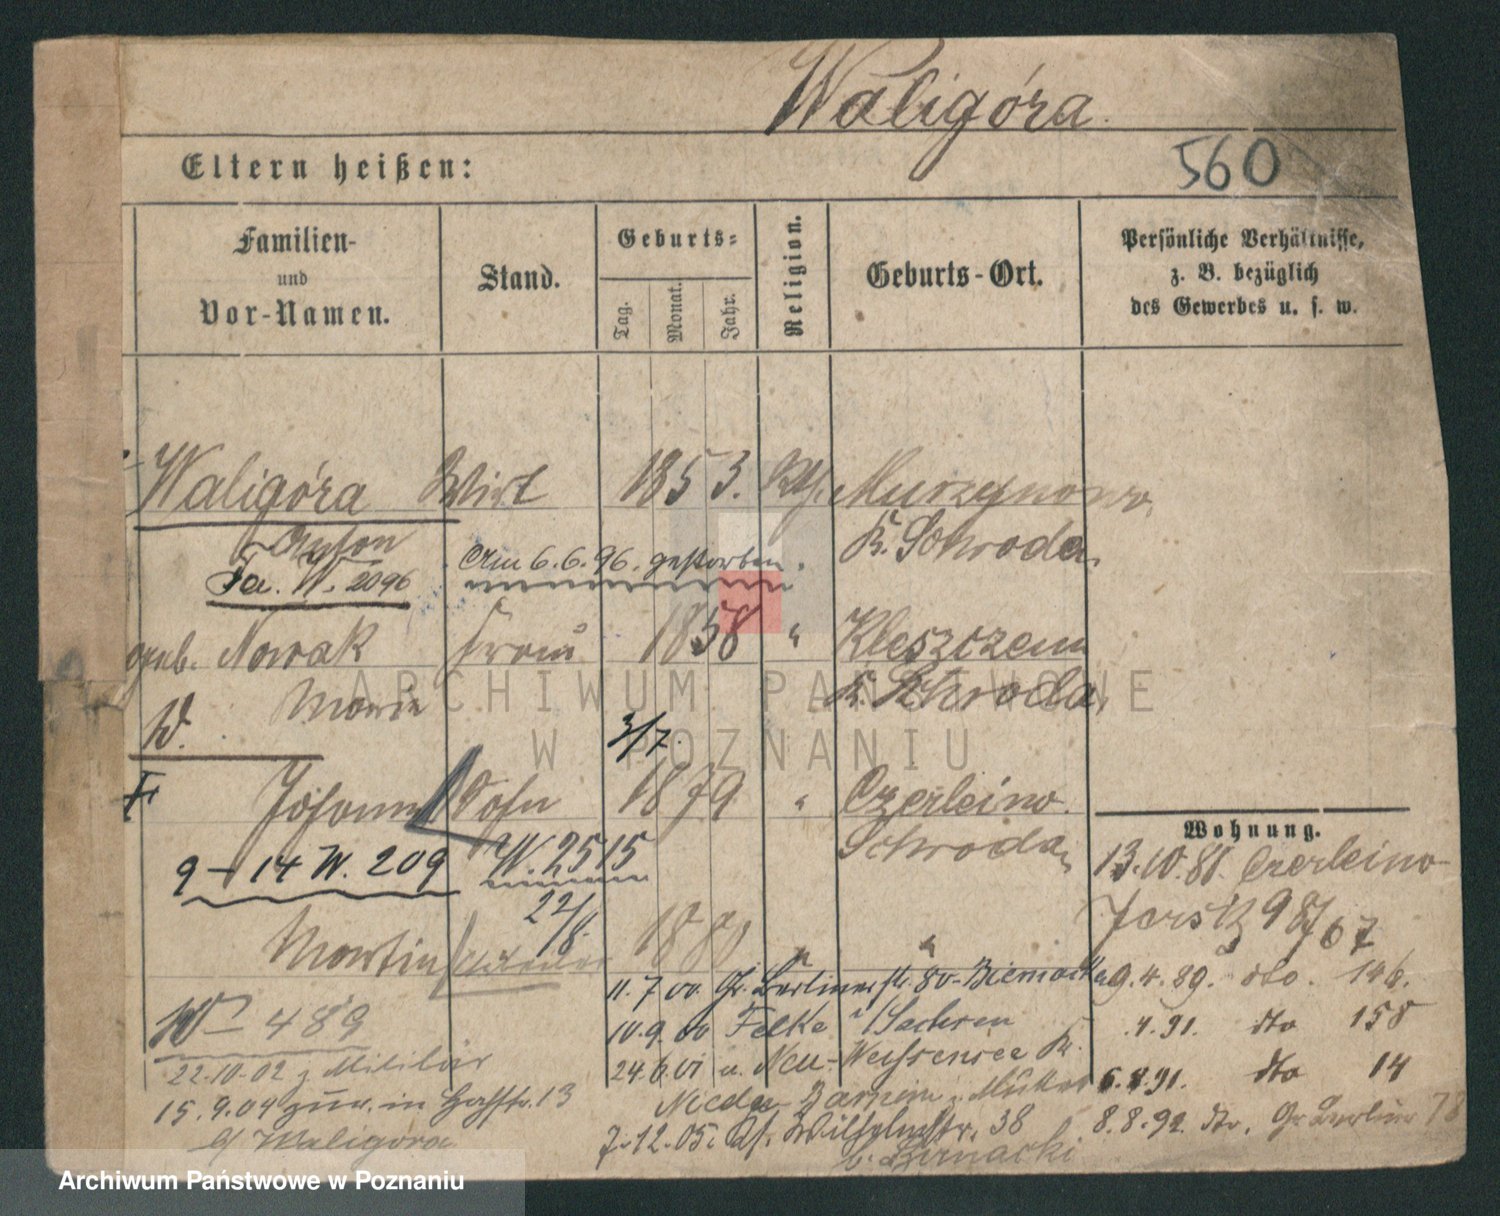 Waligóra.
560
Eltern heißen:
Familien-
und
Vor-Namen.
Stand.
Geburts-
Tag.
Monat.
Jahr.
Religion.
Geburts-Ort.
Persönliche Verhältnisse,
z. B. bezüglich
des Gewerbes u. s. w.
Waligóra Wirt 1853. Kth. Murzynowo,
Anton K. Schroda,
Am 6.6.96. gestorben.
Fa. W. 2096
geb. Nowak Frau 1858 " Kleszczewo
Maria K. Schroda,
W.
3/7.
Johann Sohn 1879 " Czerleino.
Schroda,
9-14 W. 209 W. 2515
22/8.
Martin 1880 "
W 489
22.10.02 z. Militär
15.9.04 zur. in 13
b/ Waligora
11.7.00. Gr. Berlinerstr. 80-
10.9.00 Felke i/Sachsen
24.6.01 n. Neu-Weissensee K.
Nieder Barnim z. Mutter
7.12.05. Wilhelmstr. 38
b.
Wohnung.
13.10.88. Czerleino
Jersitz 98/67
9.4.89. dto. 146.
.4.91. dto 158
6.4.91. dto 14
8.8.92. dto. Gr. Berliner 78
ARCHIWUM PAŃSTWOWE
W POZNANIU
Archiwum Państwowe w Poznaniu